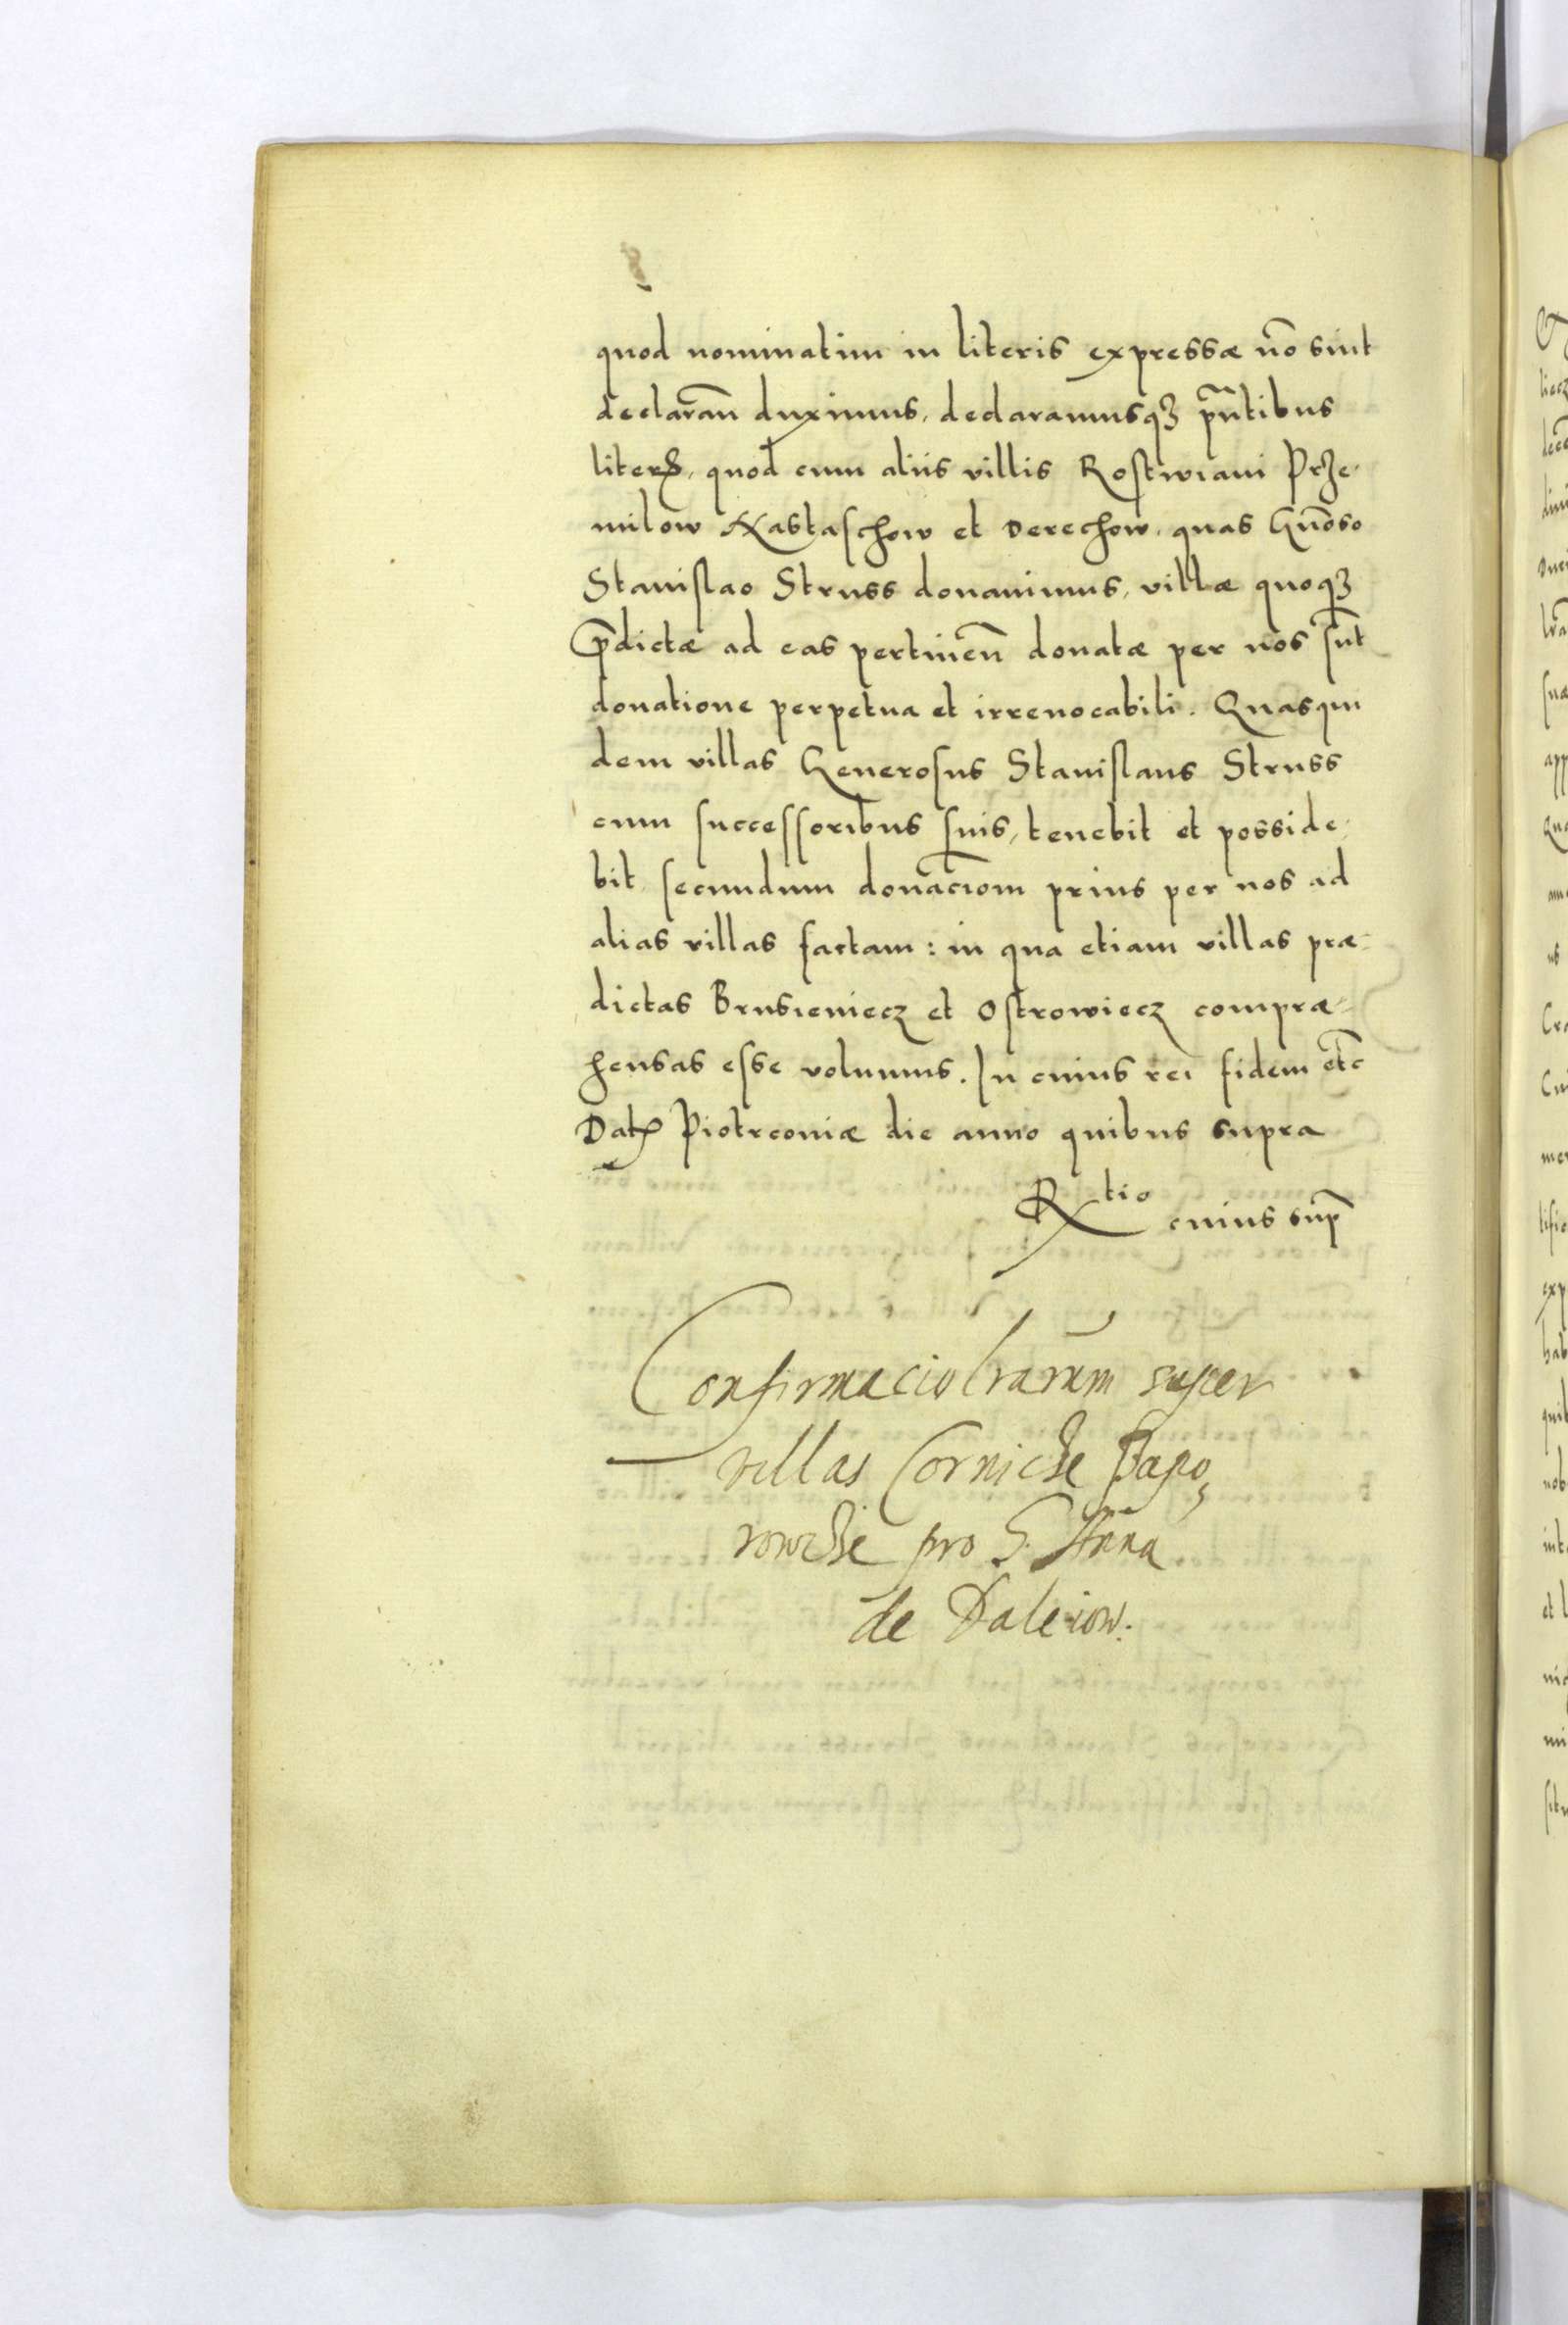 quod nominatim in literis expressæ nõ sint
declarañ duximus, declaramusqꝫ pñtibus
literꝭ, quod cum aliis villis Rostwiani Prze-
milow Xastaschow et Derechow, quas Gñoso
Stanislao Struss donauimus, villæ quoqꝫ
p̄dictæ ad eas pertineñ donatæ per nos sūt
donatione perpetua et irreuocabili. Quasqui
dem villas Generosus Stanislaus Struss
cum successoribus suis, tenebit et posside-
bit, secundum donac̄iom prius per nos ad
alias villas factam: in qua etiam villas præ-
dictas Brusieniecz et Ostrowiecz compræ-
hensas esse volumus. In cuius rei fidem etc̄
Datꝭ Piotrconiæ die anno quibus supra
Rtio cuius sup̄
Confirmacio lrārum super
villas Corniche Papo,
rowche pro G. Anna
de Daleiow.